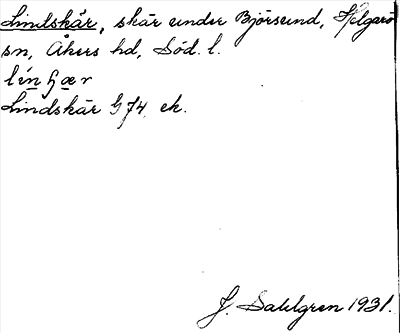 Lindskär, skär under Björsund, Helgarö
sn, Åkers hd, Söd. l.
Lindskär G 74 ek.
J. Sahlgren 1931.